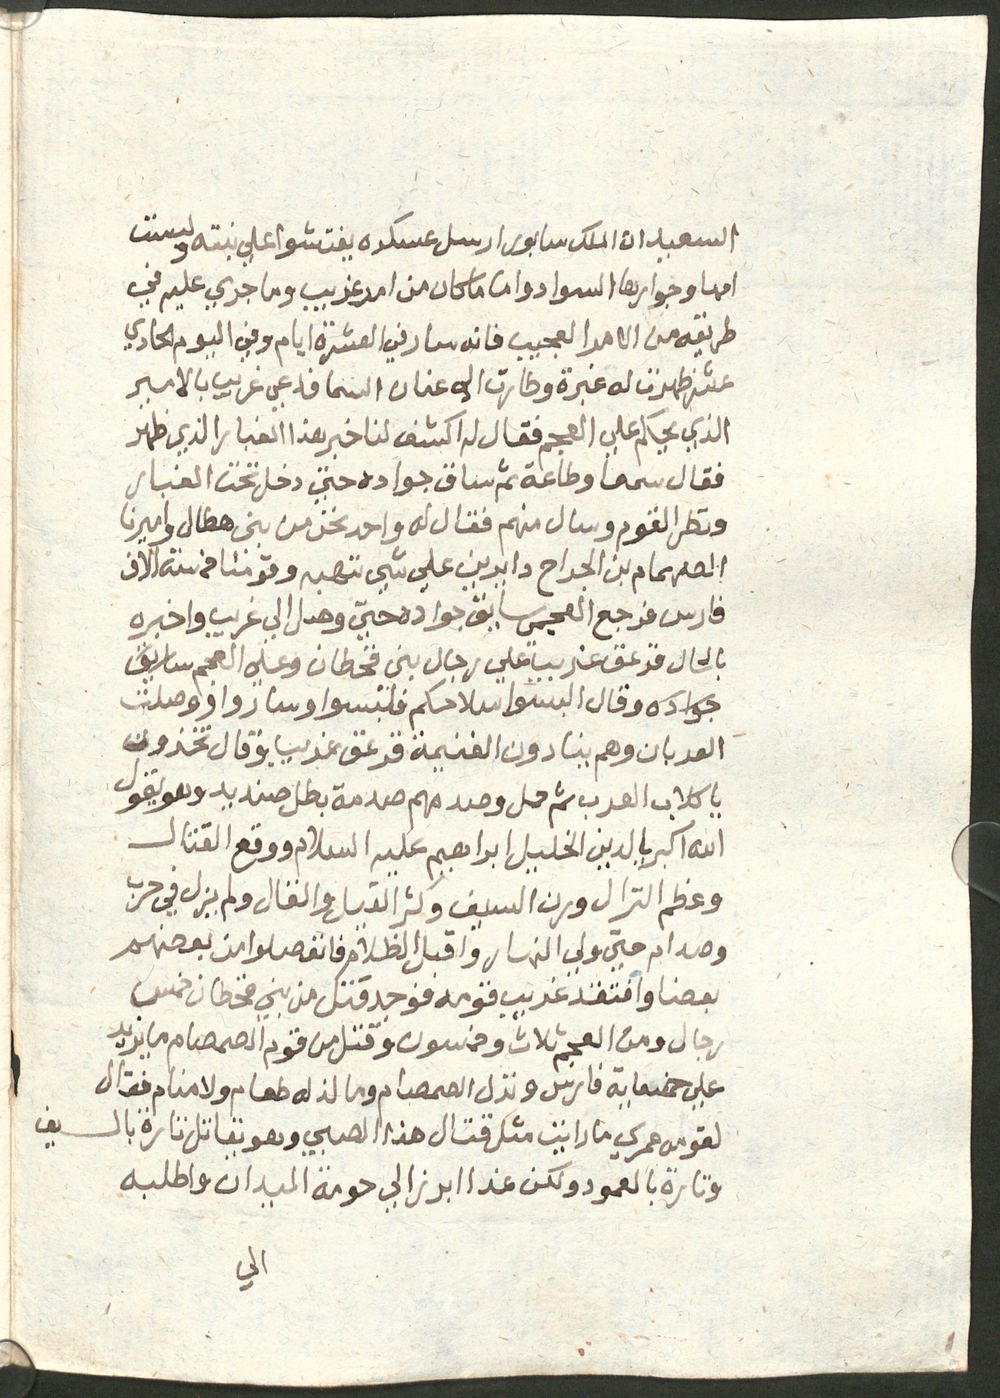 السعيد ان الملك سابور ارسل عسكره يفتشوا علي بنته ولبست
امها وجوارها السواد واما ماكان من امر غريب وما جري عليه في
طريقه من الامر العجيب فانه سار في العشرة ايام وفي اليوم الحادي
عشر ظهرت له غبرة وطارت الي عنان السما فدعي غريب بالامير
الذي يحكم علي العجم فقال له اكشف لنا خبر هذا الغبار الذي ظهر
فقال سمعا وطاعة ثم ساق جواده حتي دخل تحت الغبار
ونظر القوم وسال منهم فقال له واحد نحن من بني هطال واميرنا
الصمصام بن الجراح دايرين علي شي ننهبه وقومنا خمسة الاف
فارس فرجع العجمي سايق جواده حتي وصل الي غريب واخبره
بالحال فزعق غريب علي رجال بني قحطان وعلي العجم سايق
جواده وقال البسوا سلاحكم فلبسوا وساروا ووصلت
العربان وهم ينادون الغنيمة فزعق غريب وقال تخذون
يا كلاب العرب ثم حمل وصدمهم صدمة بطل صنديد وهو يقول
الله اكبر يالدين الخليل ابراهيم عليه السلام ووقع القتال
وعظم النزال ورن السيف وكثر القيل والقال ولم يزل في حرب
وصدام حتي ولي النهار واقبل الظلام فانفصلوا من بعضهم
بعضا وافتقد غريب قومه فوجد قتل من بني قحطان خمس
رجال ومن العجم ثلاث وخمسون وقتل من قوم الصمصام ما يزيد
علي خمسماية فارس ونزل الصمصام وما لذ له طعام ولا منام فقال
لقومه عمري ما رايت مثل قتال هذا الصبي وهو يقاتل تارة بالسيف
وتارة بالعمود ولكن غدا ابرز الي حومة الميدان واطلبه
الي